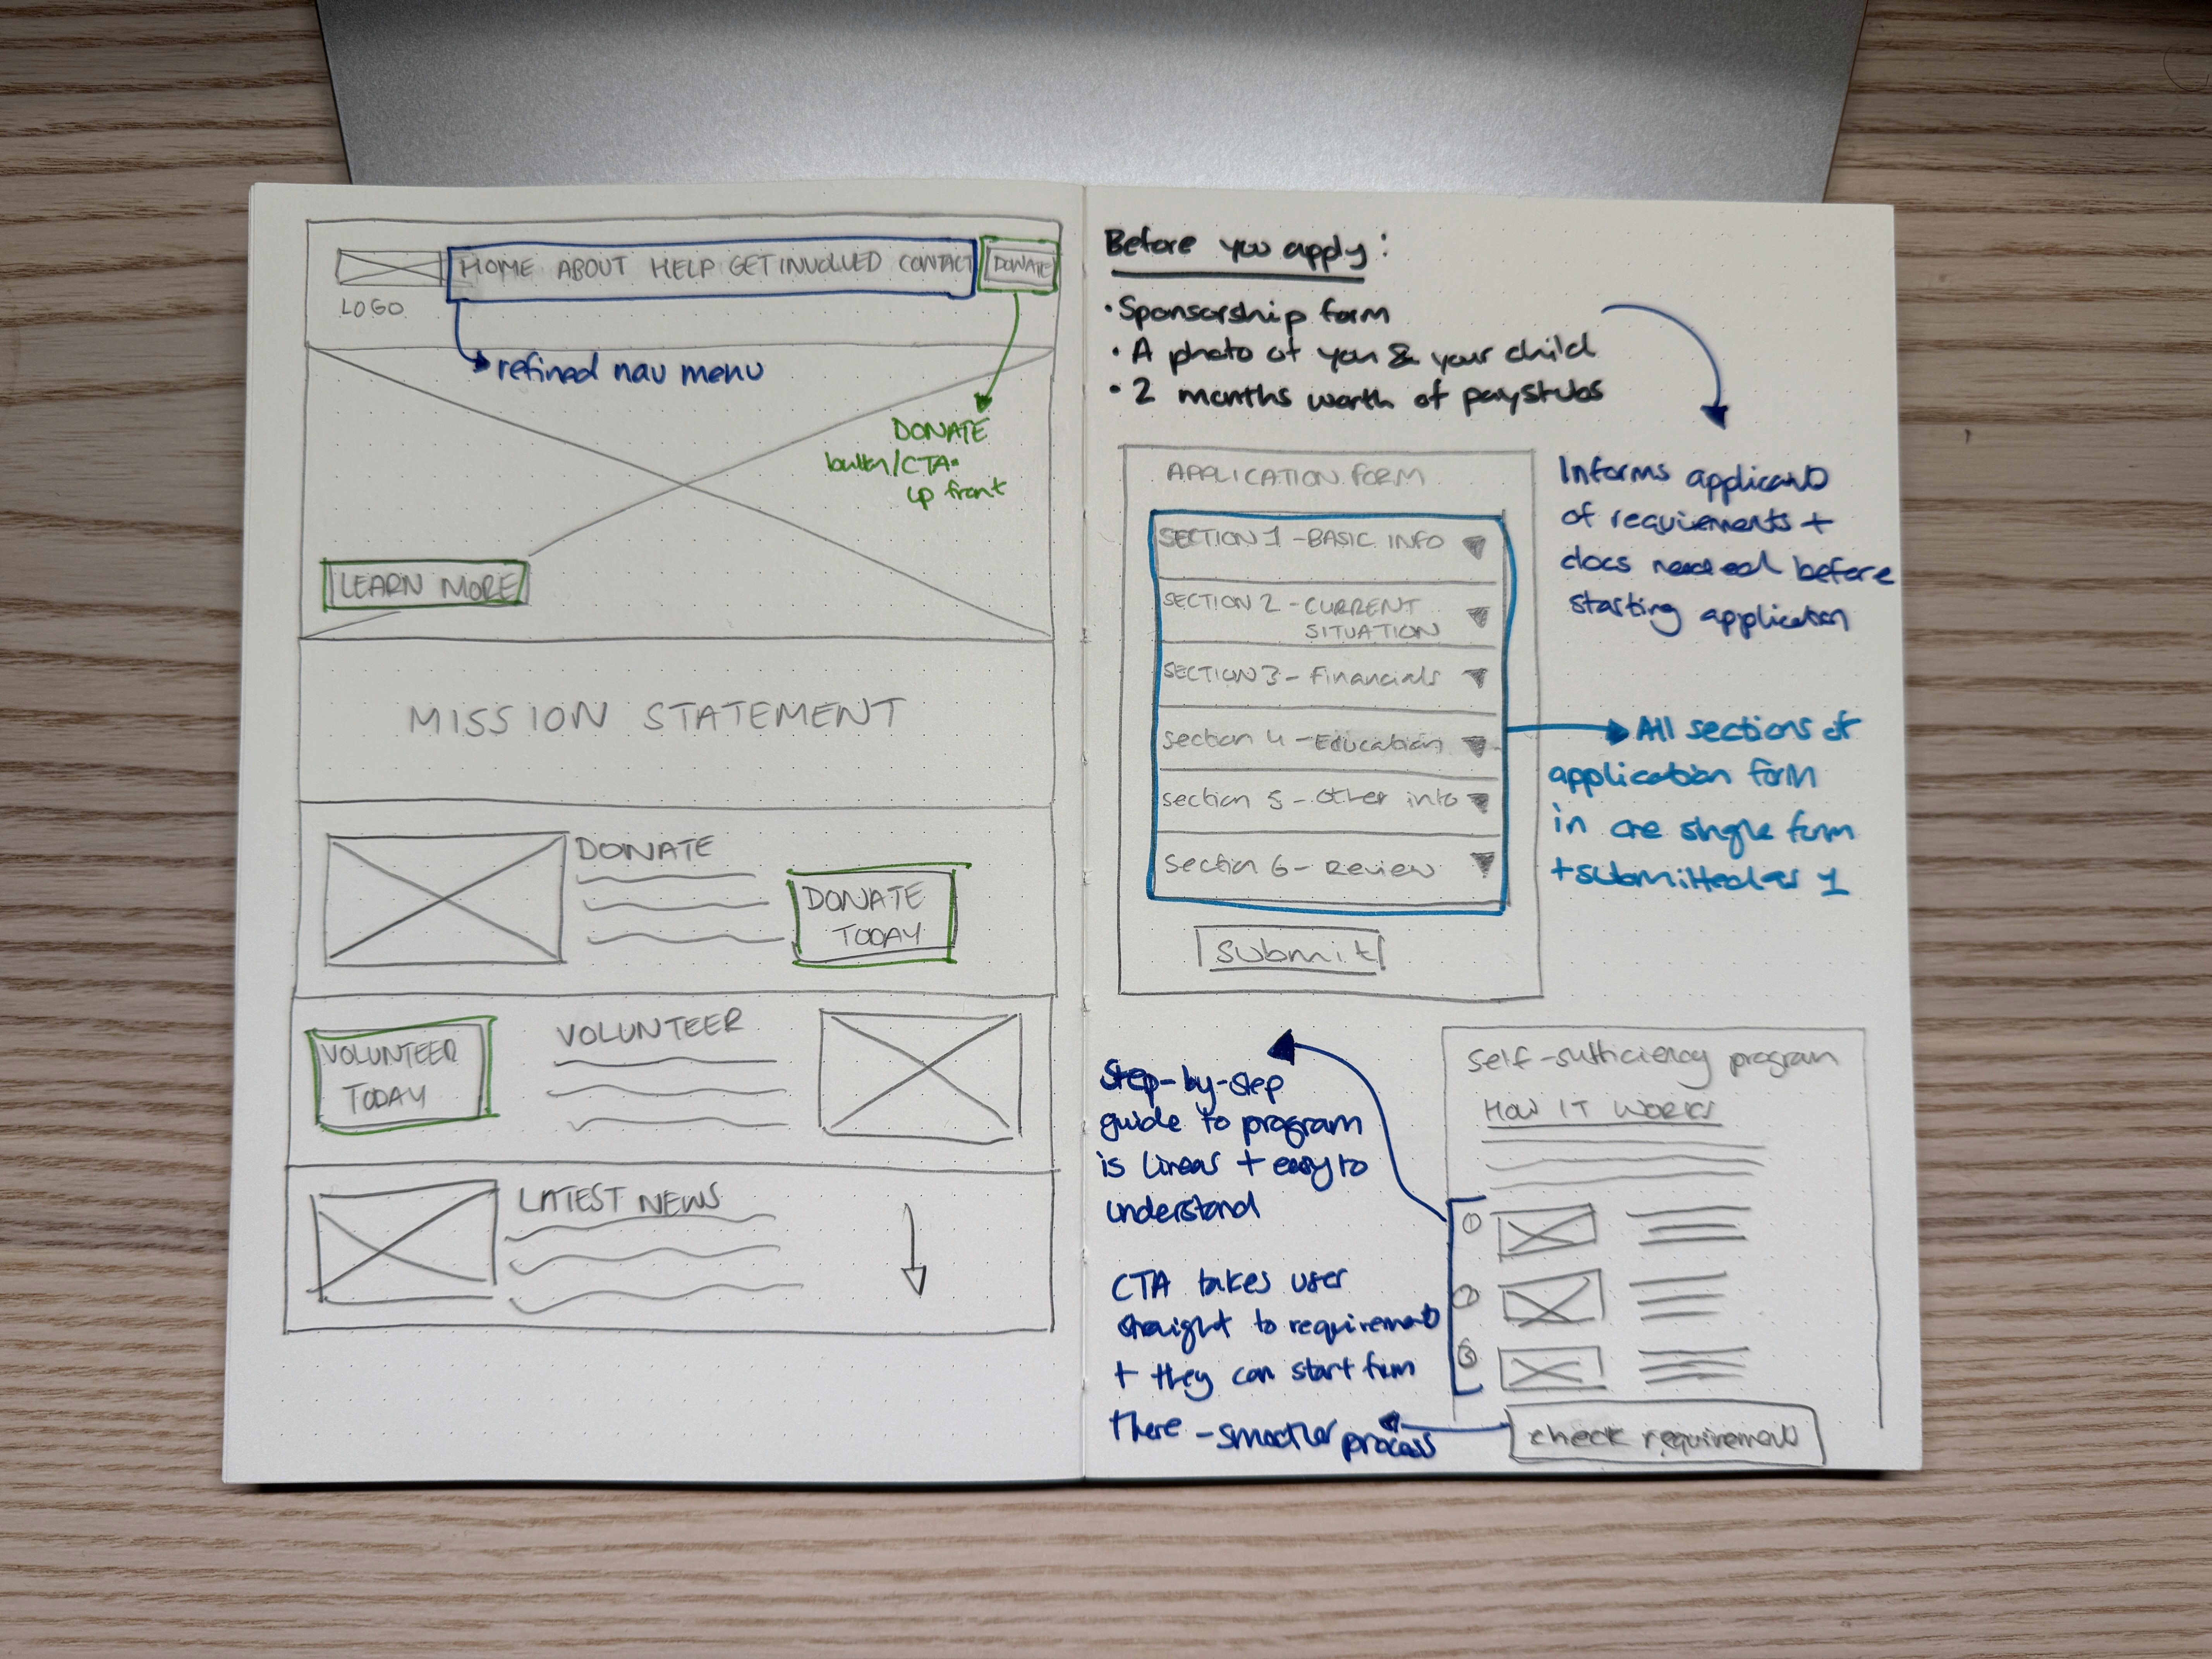 HOME ABOUT HELP GET INVOLVED CONTACT
DONATE
LOGO
refined nav menu
DONATE
button/CTA
up front
LEARN MORE
MISSION STATEMENT
DONATE
DONATE
TODAY
VOLUNTEER
TODAY
VOLUNTEER
LATEST NEWS
Before you apply:
• Sponsorship form
• A photo of you & your child
• 2 months worth of paystubs
Informs applicants
of requirements +
docs needed before
starting application
APPLICATION FORM
SECTION 1 - BASIC INFO
SECTION 2 - CURRENT
SITUATION
SECTION 3 - Financials
Section 4 - Education
section 5 - Other info
Section 6 - Review
Submit
All sections of
application form
in one single form
+ submitted as 1
Step-by-step
guide to program
is linear + easy to
understand
CTA takes user
straight to requirements
+ they can start from
there - smoother process
Self-sufficiency program
HOW IT WORKS
1
2
3
check requirements